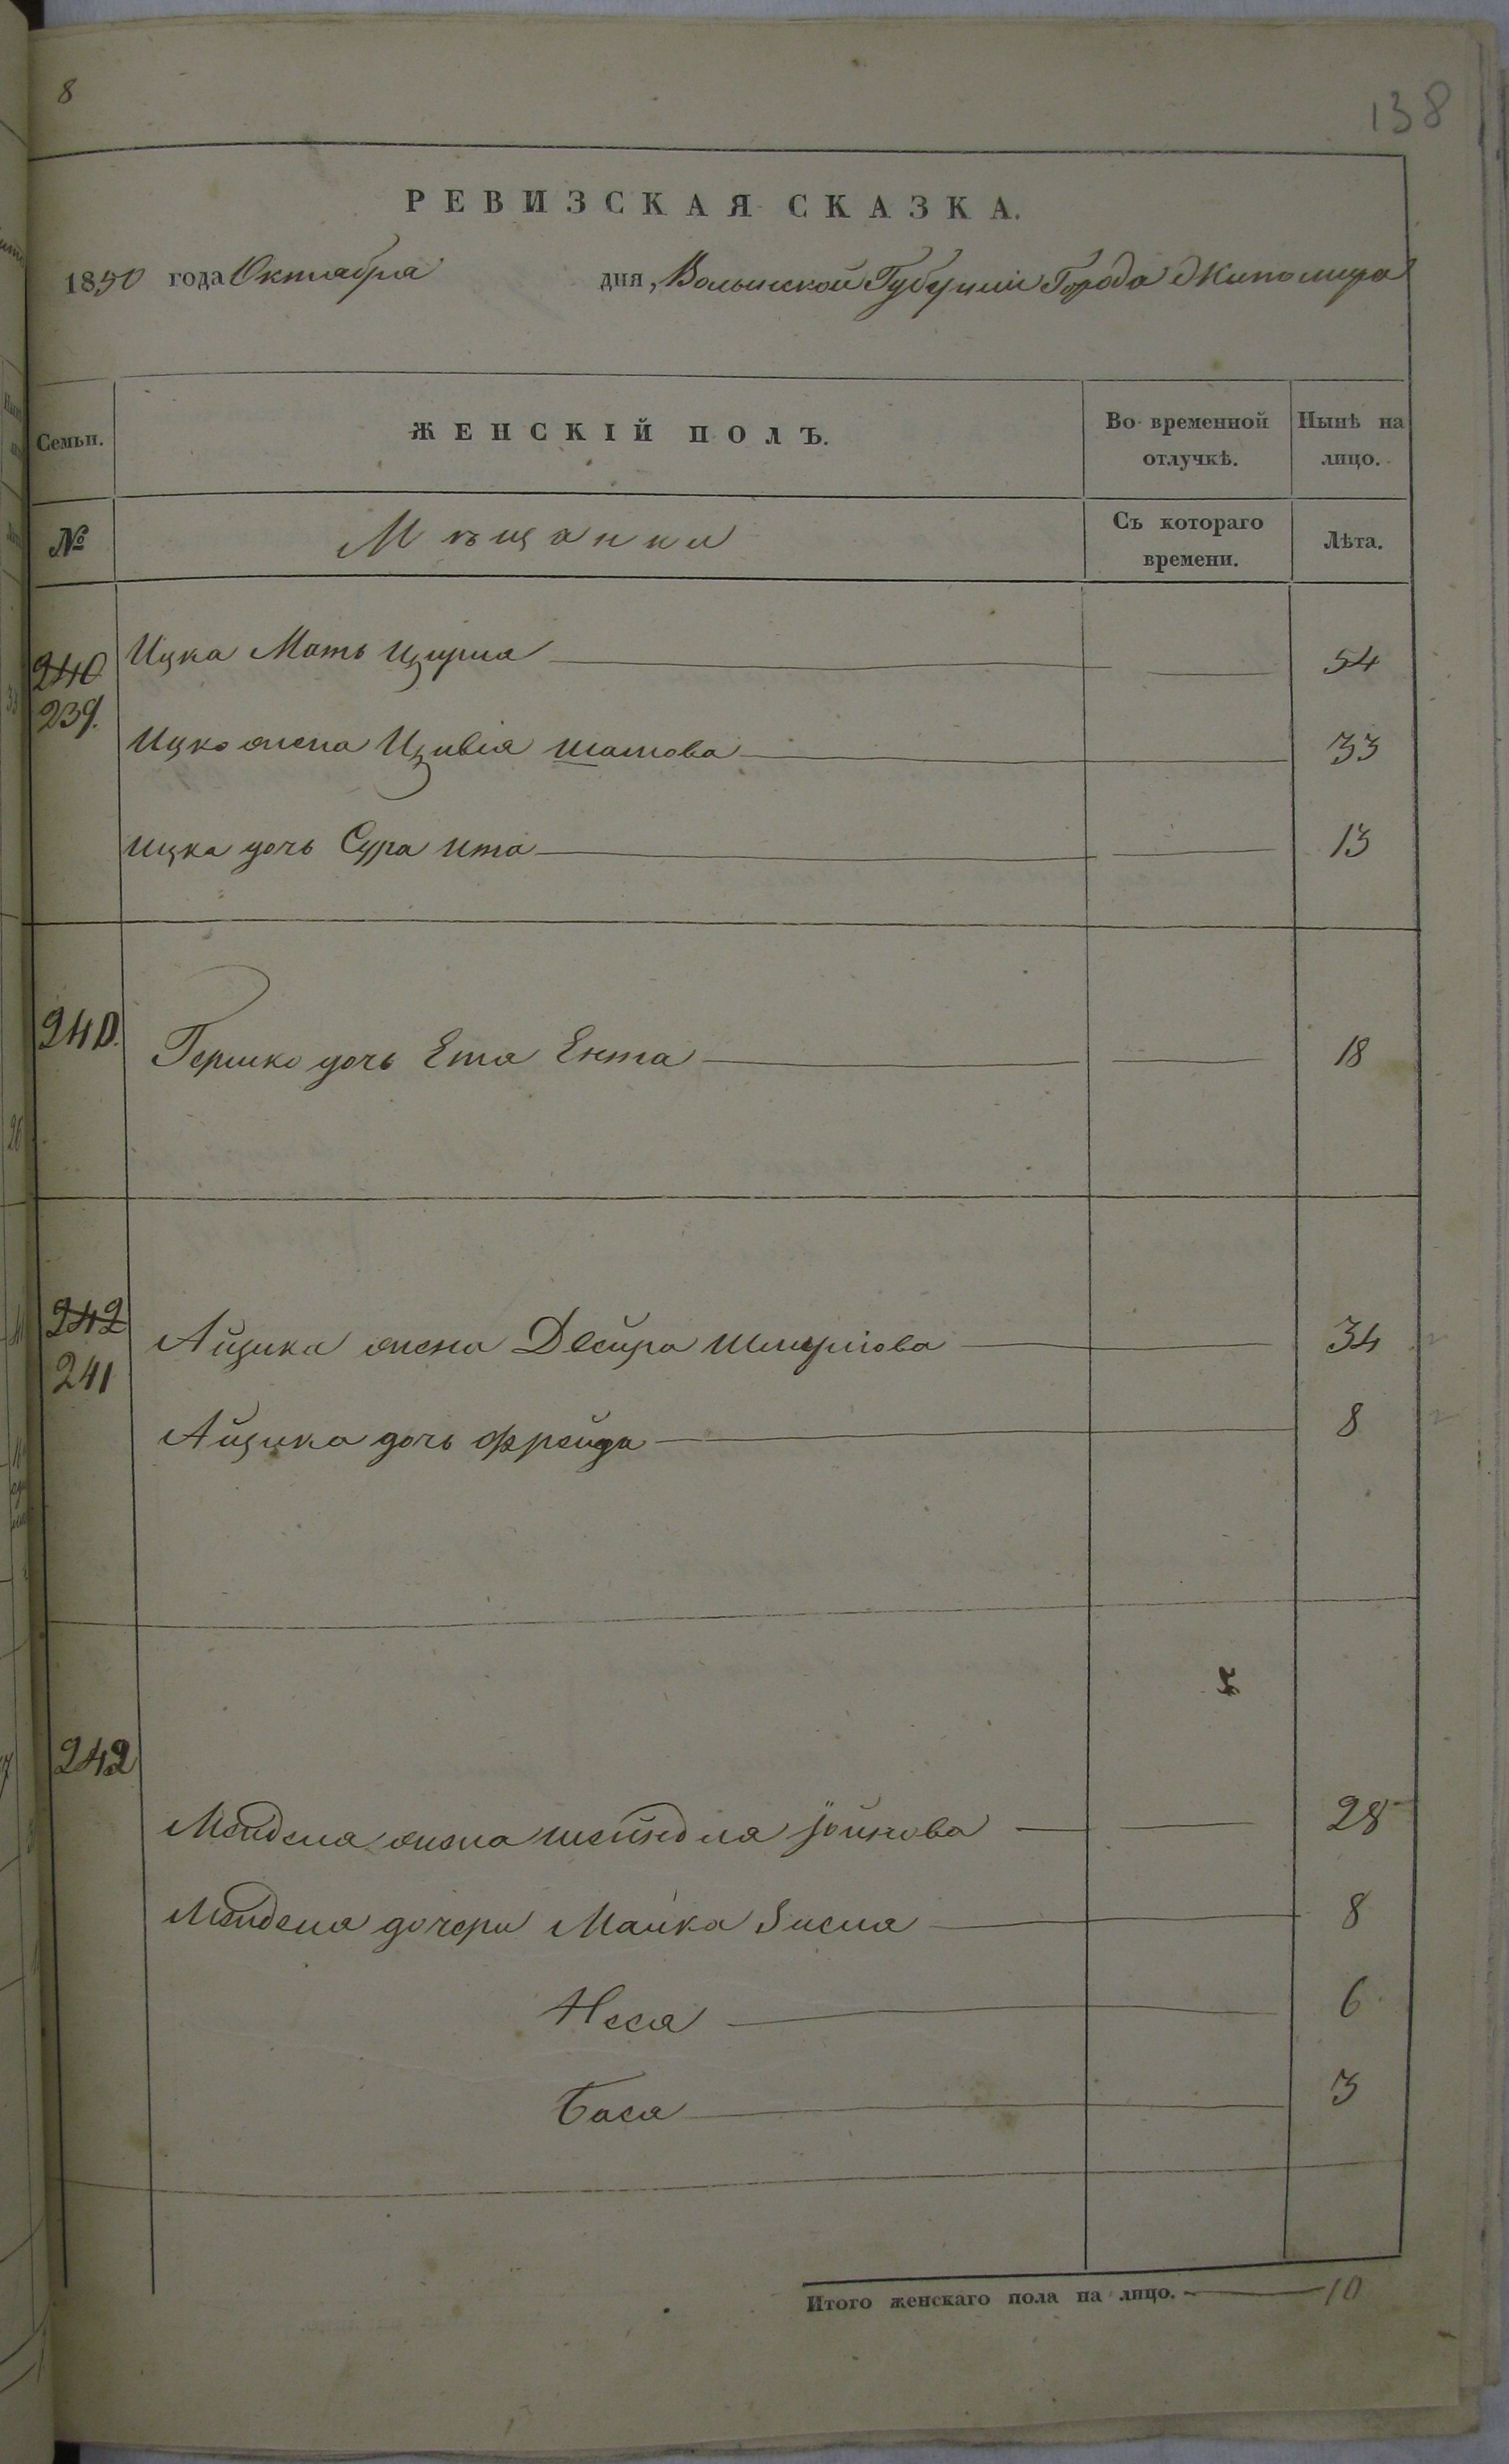 8
138
РЕВИЗСКАЯ СКАЗКА.
1850 года Октября дня, Волынской Губерніи Города Житомира
Семьи. ЖЕНСКІЙ ПОЛЪ. Во временной отлучкѣ. Нынѣ на лицо.
№ Мѣщанки Съ котораго времени. Лѣта.
240 Ицка Мать Цирля 54
239. Ицко жена Цивія 33
Ицка дочь Сура Ита 13
240. Гершко дочь Ета Ента 18
242 Айзика жена Двейра Шмулiова 34
241
Айзика дочь Фрейда 8
242
Менделя жена Шейндля 28
Менделя дочери Малка Зисля 8
Неся 6
Бася 3
Итого женскаго пола на лицо. 10